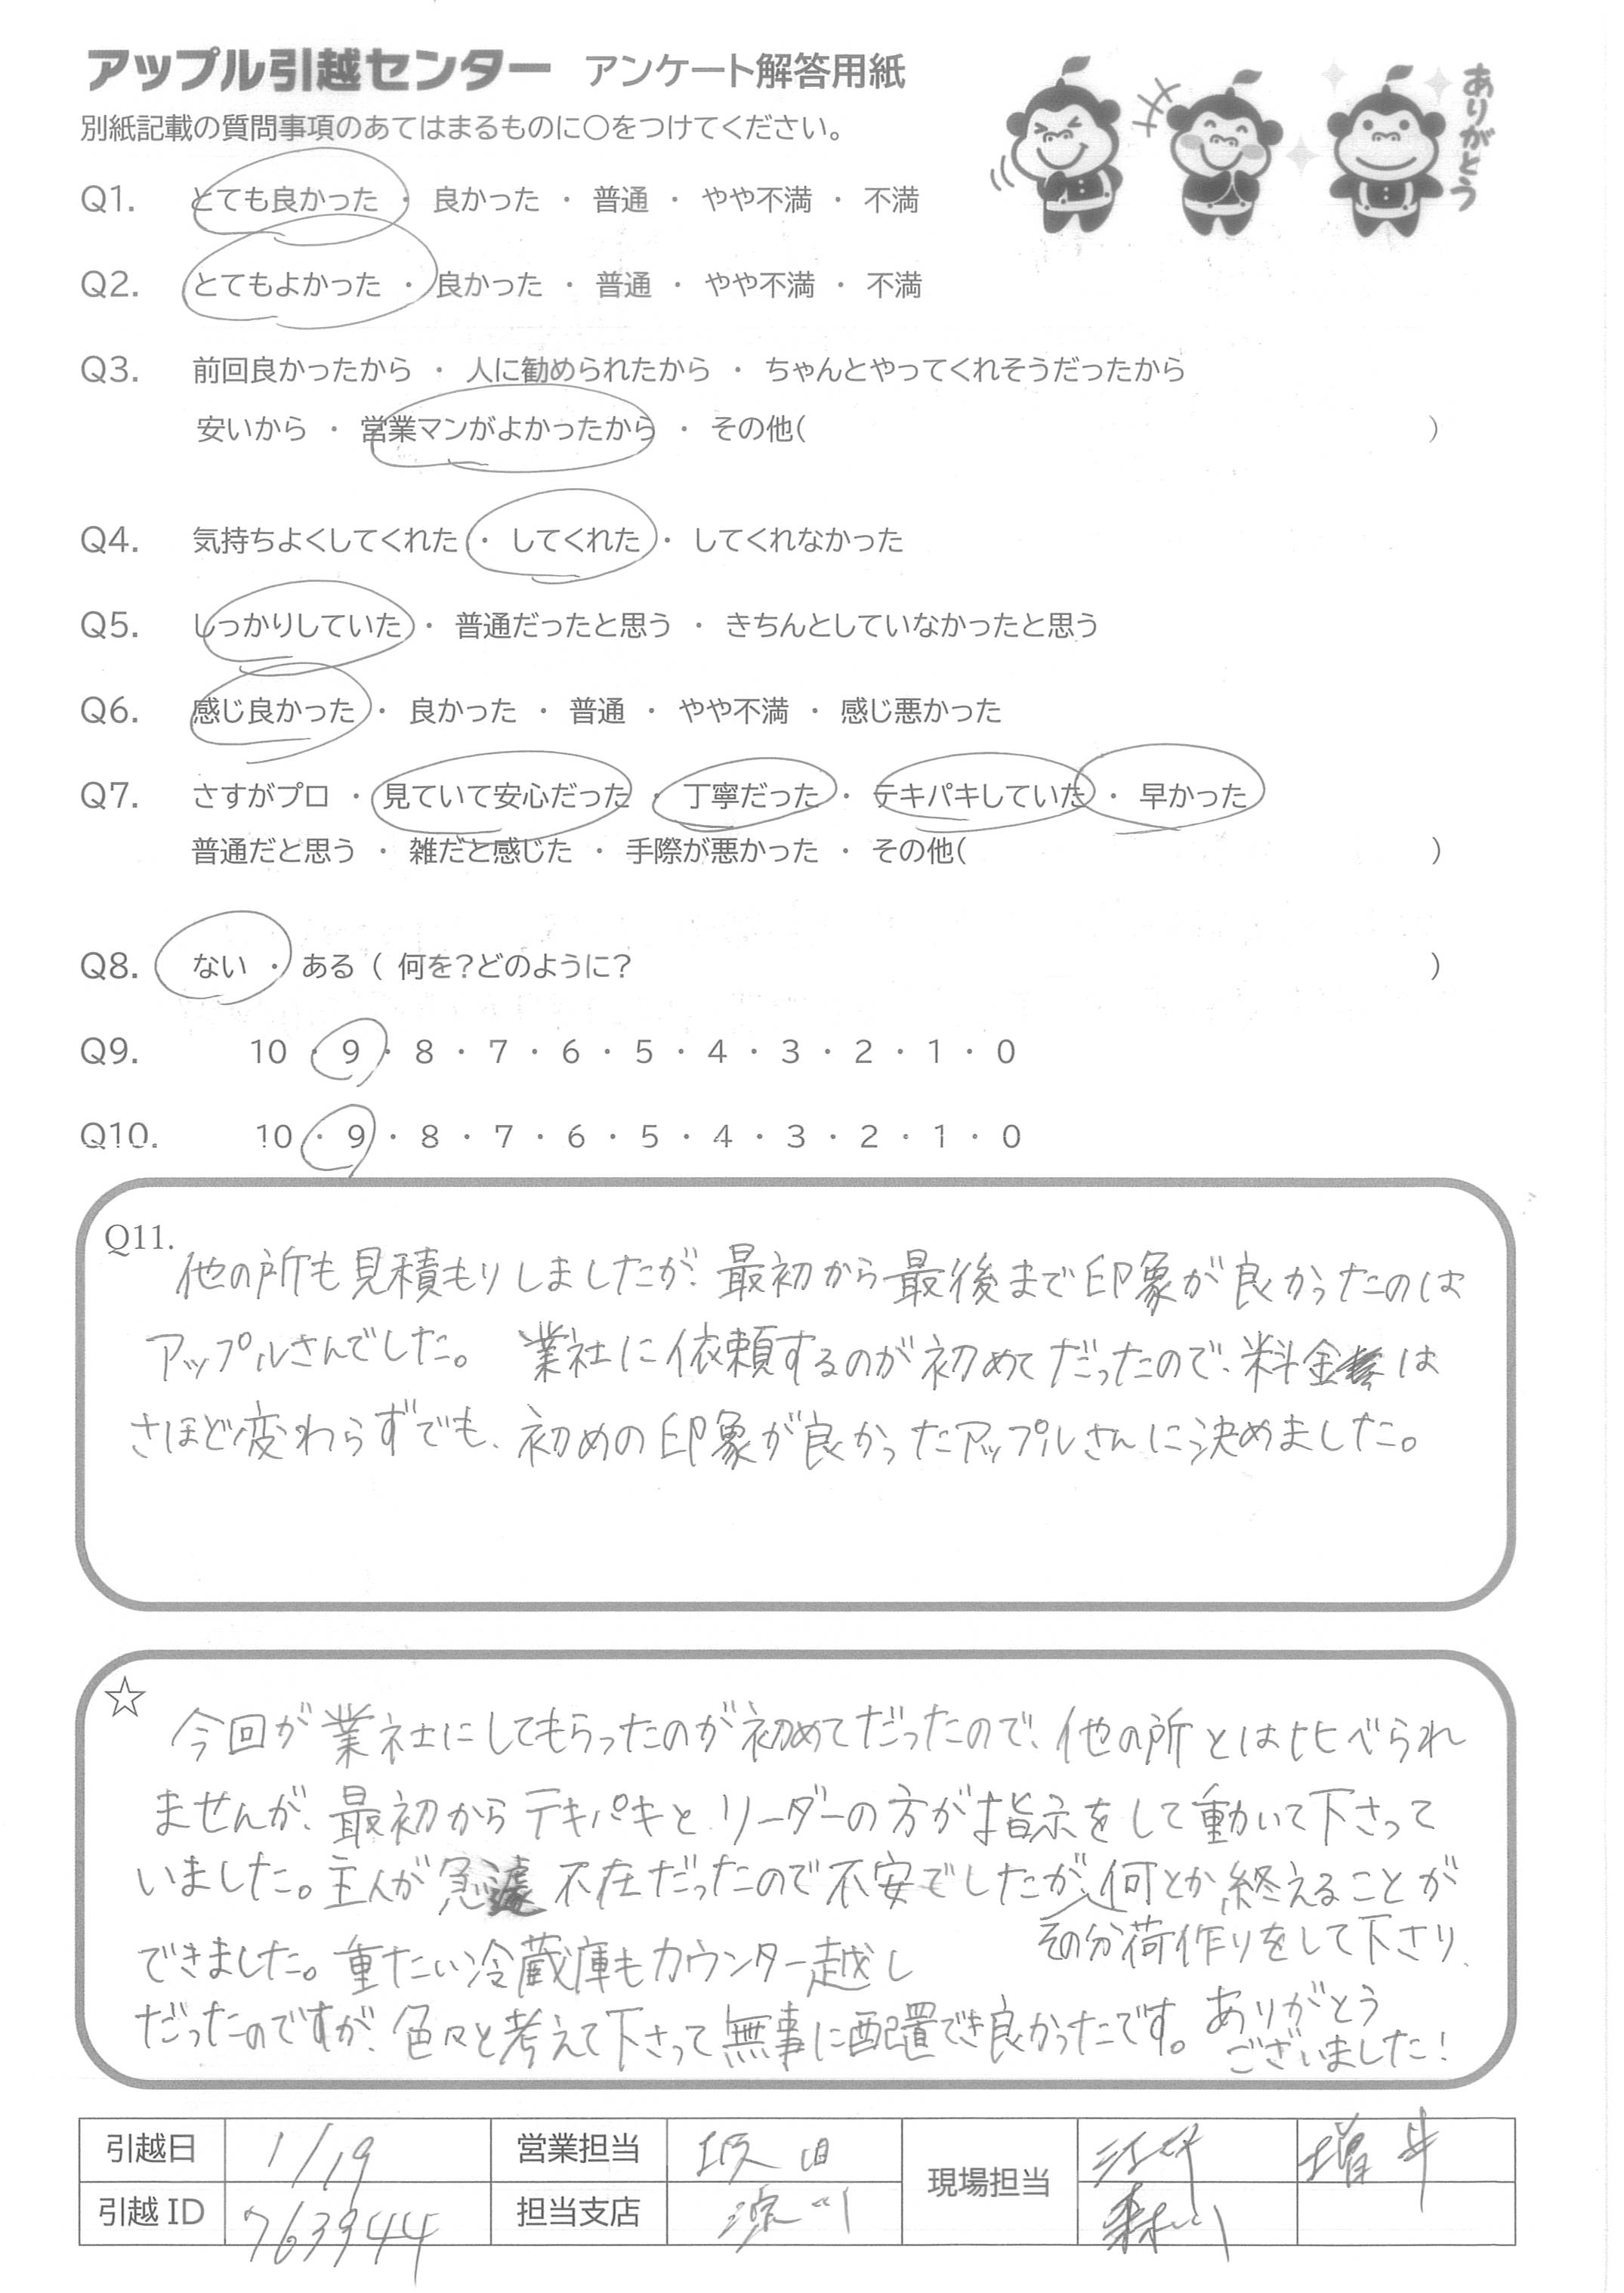 アップル引越センター アンケート解答用紙
ありがとう
別紙記載の質問事項のあてはまるものに○をつけてください。
Q1. とても良かった ・ 良かった ・ 普通 ・ やや不満 ・ 不満
Q2. とてもよかった ・ 良かった ・ 普通 ・ やや不満 ・ 不満
Q3. 前回良かったから ・ 人に勧められたから ・ ちゃんとやってくれそうだったから
安いから ・ 営業マンがよかったから ・ その他( )
Q4. 気持ちよくしてくれた ・ してくれた ・ してくれなかった
Q5. しっかりしていた ・ 普通だったと思う ・ きちんとしていなかったと思う
Q6. 感じ良かった ・ 良かった ・ 普通 ・ やや不満 ・ 感じ悪かった
Q7. さすがプロ ・ 見ていて安心だった ・ 丁寧だった ・ テキパキしていた ・ 早かった
普通だと思う ・ 雑だと感じた ・ 手際が悪かった ・ その他( )
Q8. ない ・ ある ( 何を?どのように? )
Q9. 10 ・ 9 ・ 8 ・ 7 ・ 6 ・ 5 ・ 4 ・ 3 ・ 2 ・ 1 ・ 0
Q10. 10 ・ 9 ・ 8 ・ 7 ・ 6 ・ 5 ・ 4 ・ 3 ・ 2 ・ 1 ・ 0
Q11.
他の所も見積もりしましたが、最初から最後まで印象が良かったのは
アップルさんでした。 業社に依頼するのが初めてだったので、料金は
さほど変わらずでも、初めの印象が良かったアップルさんに決めました。
☆
今回が業社にしてもらったのが初めてだったので、他の所とは比べられ
ませんが、最初からテキパキとリーダーの方が指示をして動いて下さって
いました。主人が急遽不在だったので不安でしたが、何とか終えることが
その分荷作りをして下さり、
できました。重たい冷蔵庫もカウンター越し
だったのですが、色々と考えて下さって無事に配置でき良かったです。ありがとう
ございました!
引越日 1/19 営業担当 現場担当 増井
引越ID 763944 担当支店 森川